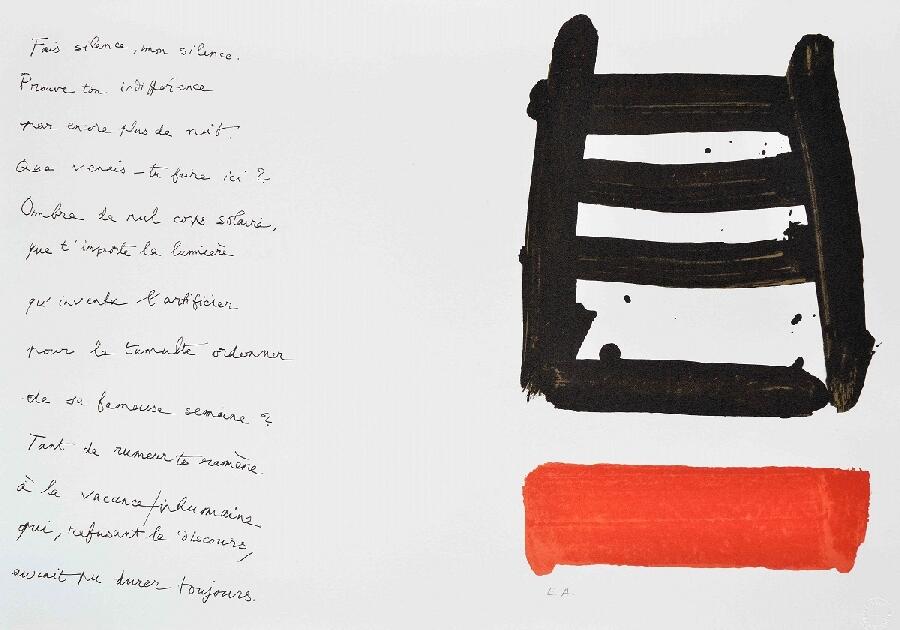 Fais silence, mon silence.
Prouve ton indifférence
par encore plus de nuit.
Que venais-tu faire ici ?
Ombre de nul corps solaire,
que t'importe la lumière
qu'inventa l'artificier
pour le tumulte ordonner
de sa fameuse semaine ?
Tant de rumeur te ramène
à la vacance inhumaine
qui, refusant le discours,
aurait pu durer toujours.
E.A.